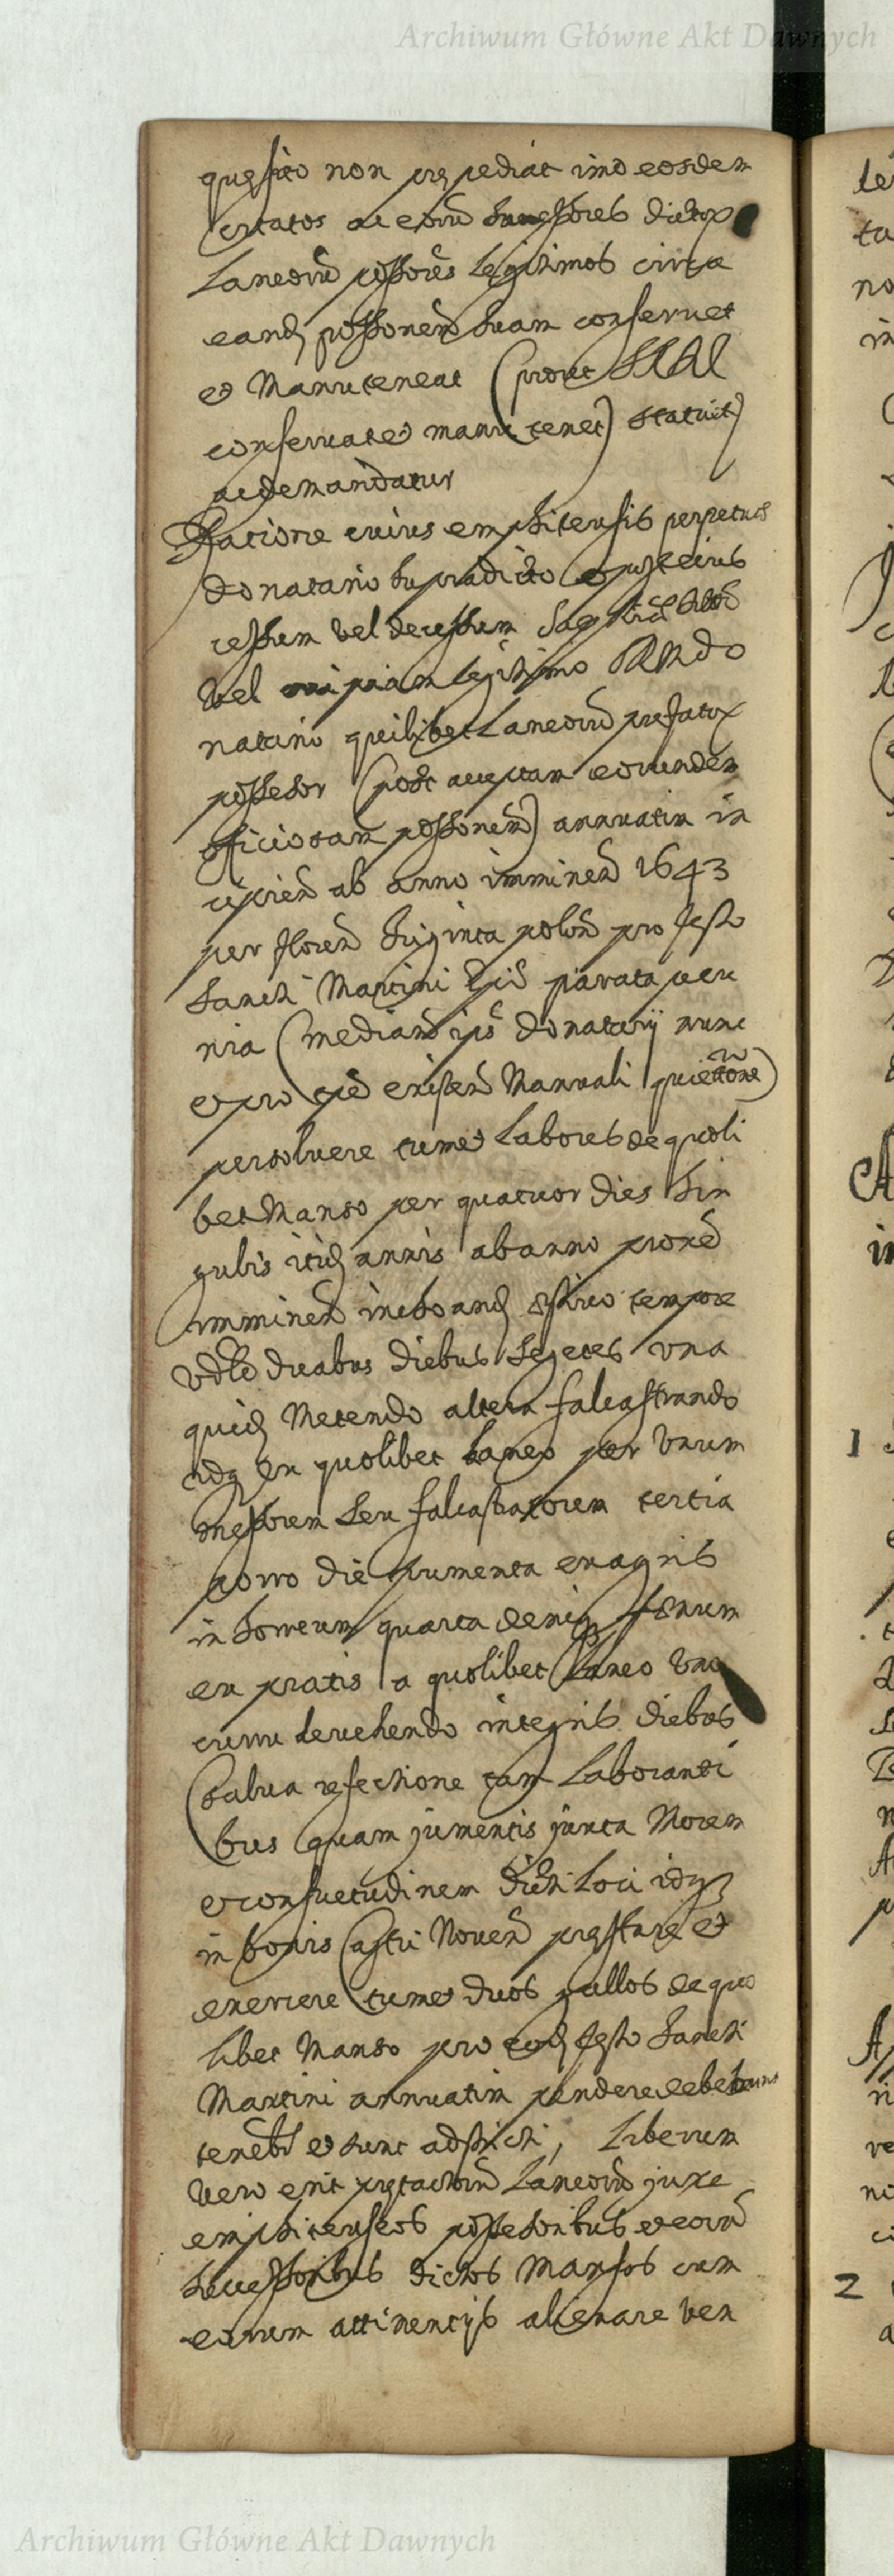 Archiwum Główne Akt Dawnych
quęsito non prępediat imo eosdem
citatos ac eorū successores dictor
Laneorū possores Legitimos circa
eand possonem suam conservet
et Manuteneat (prout
conservat et manu tenet) statuit
ac demandatur
Ratione cuius emphiteusis perpetuæ
donatario supradicto et post eius
cessum vel decessum
vel legitimo
natario quilibet Laneorū prefator
possessor (post acceptam eorundem
officiosam possonem) annuatim in
cipien ab anno imminen 1643
per floren triginta polon pro festo
Sancti Martini parata pecu
nia (median ips Donatarij nunc
et pro existen Manuali quiettone)
persolvere tum et Labores de quoli
bet Manso per quatuor dies Sin
gulis itid annis ab anno proxe
imminen inchoand æstivo tempore
vdlt duabus diebus Segetes una
quid Metendo altera falcastrando
idq ex quolibet Laneo per Unum
messorem seu falcastratorem tertia
porro die frumenta ex agris
in horreum quarta deniq fænum
ex pratis a quolibet Laneo uno
curru devehendo integris diebus
(salva refectione tam Laboranti
bus quam jumentis juxta Morem
et consuetudinem dicti Loci idq
in bonis Castri Noven pręstare et
exercere tum et duos gallos de quo
libet Manso pro eod festo Sancti
Martini annuatim pendere debebunt
tenebr et sunt adstricti, Liberum
vero erit prętactorū Laneorū jure
emphiteuseos possessoribus et eorū
successoribus dictos Mansos cum
eorum attinencijs alienare ven
1
2
Archiwum Główne Akt Dawnych